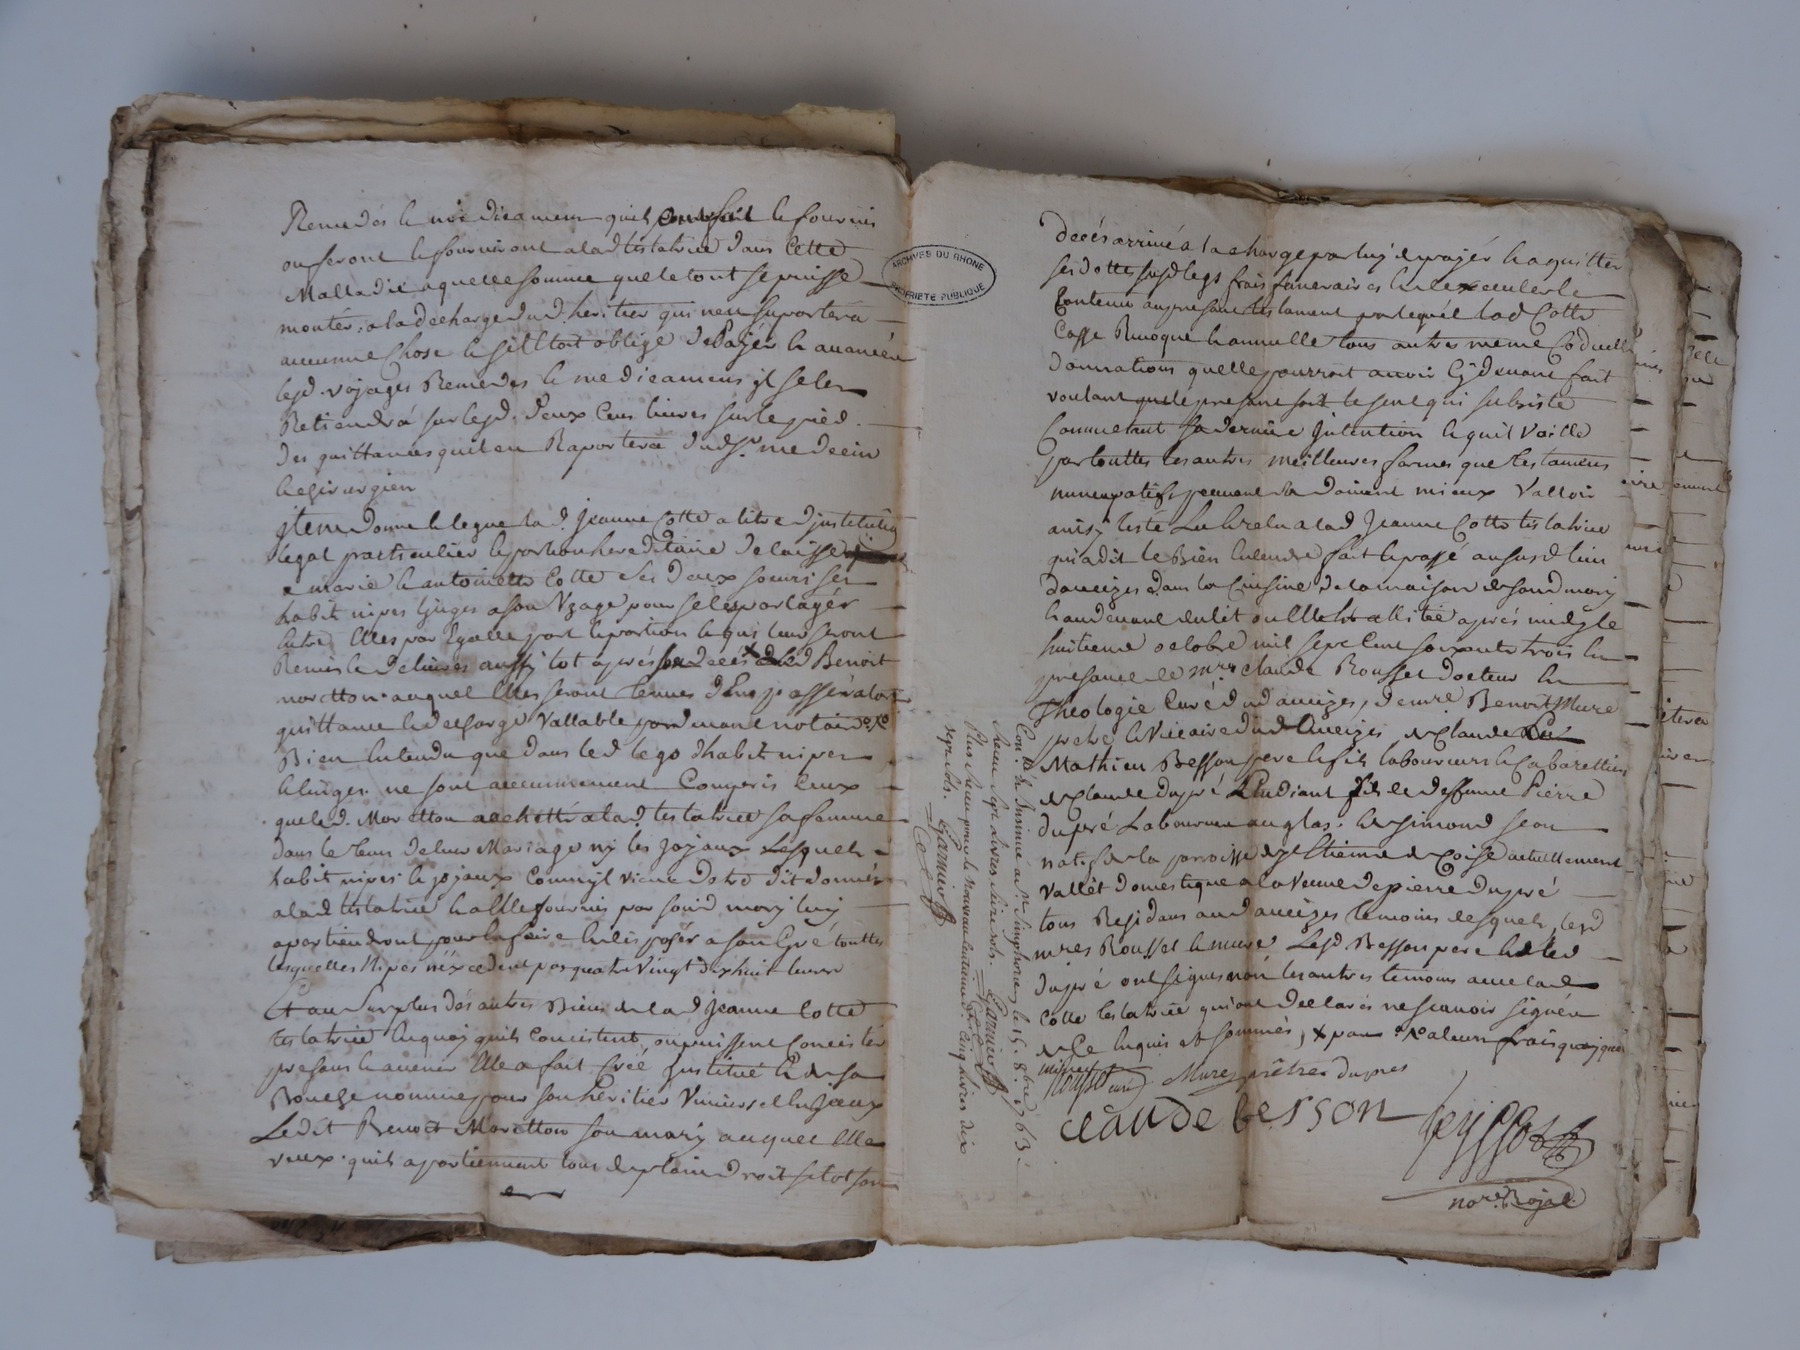 Remedes le medicamens quils ont fait le fournis
ou feront le fourniront a lad testatrice dans Cette
Malladie a quelle somme que le tout se puisse
montér, a la decharge dud. héritier qui nen suportera
aucunne Chose le sil Etoit obligé de Payér le avancér
lesd. voyages Remedes le medicamens jl se les
Retiendrá sur lesd. deux Cens livres sur le pied
des quittances quil en Raportera dud sr. medecin
le chirurgien
jtem donne le legue lad. Jeanne Cotte a titre djnstitution
legat particulier le portion hereditaire delaisse
a marie le antoinette Cotte ses deux soeurs ses
habits nipes linges a son Uzage pour se les partagér
Entre Elles par Egalle part le portion le qui leur seront
Remis le delivres aussy tot aprés son decés led Benoit
moretton auquel Elles seront tenues d'En passér alors
quittance le decharge Vallable pardevant notaire
Bien Entendu que dans led legs dhabits nipes
le linges ne sont aucunnement Compris Ceux
que led. Moretton a achetté a lad. testatrice sa femme
dans le tems de leur Mariage ny les joyaux Lesquels
habits nipes le joyaux Comm'jl vient dEtre dit donnér
a lad testatrice le a Elle fournis par sond mary luy
apartiendront pour En faire le disposér a son Gré touttes
lesquelles Nipes n'éxcedent pas quatre Vingt dix huit livres
Et au Surplus dés autres Biens de la d Jeanne Cotte
testatrice En quoy quils Concistent, ou puissent Concister
presens le avenir Elle a fait Créé jnstitué le de sa
Bouche nommé pour son héritier Universel
Ledit Benoit Moretton son mary auquel Elle
veux quils apartiennent tous de plain droit sitot son
ARCHIVES DU RHONE
PROPRIETE PUBLIQUE
decés arrivé a la charge par luy de payér le aquitter
ses dottes susd legs frais funeraires le d'exceculer le
Contenu au present testament par lequél lad Cotte
Casse Revoque le annulle tous autres meme Codicilles
donnations quelle pourroit avoir Cy devant fait
voulant que le present soit le seul qui subsiste
Comme Etant sa derniere Jntention le quil Vaille
par touttes les autres meilleures formes que testamens
nuncupatifs peuvent le doivent mieux Valloir
ainsy testé Lu le relu a lad Jeanne Cotte testatrice
qui a dit le Bien Entendre fait le passé au susd lieu
daveizes dans la Cuisine de la maison de sond mary
le audevant du lit ou Elle Est allitée aprés midy le
huitieme octobre mil sept Cent soixante trois En
presence de mre Claude Rousset docteur En
Theologie Curé dud aveizes, de mre Benoit Mure
pretre le Vicaire dud Aveizes de Claude
Mathieu Besson pere le fils laboureurs le Cabarettiers
de Claude dupré Etudiant fils de deffunt Pierre
dupré Laboureur au glas. le simond jean
natif de la parroisse de st Etienne de Coise actuellement
Vallét domestique a la Veuve de pierre dupré
tous Residans aud aveizes temoins desquels, lesd
mres Rousset le mure Lesd Besson pere le led
dupré ont signés non les autres temoins avec lad
Cotte testatrice qui ont declarés ne scavoir signér
de Ce Enquis et sommés, x pour
minute
Rousset curé Mure prêtre dupres
claude besson
Peyssot
nore. Royal
Con. & Insinué a St Simphorien le 15. 8bre 1763.
Recu Sept Livres
Plus Recu pour le nouveau centieme d. Cinq livres dix
sept sols.